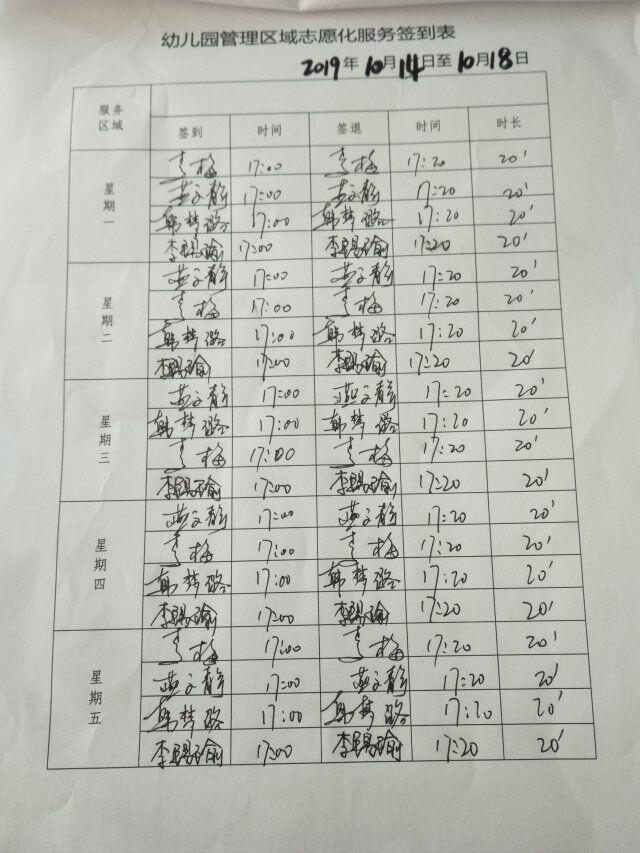 幼儿园管理区域志愿化服务签到表
2019年10月14日至10月18日
服务区域
签到 时间 签退 时间 时长
星期一
李梅 17:00 李梅 17:20 20'
燕子静 17:00 燕子静 17:20 20'
韩梦璐 17:00 韩梦璐 17:20 20'
李赐瑜 17:00 李赐瑜 17:20 20'
星期二
燕子静 17:00 燕子静 17:20 20'
李梅 17:00 李梅 17:20 20'
韩梦璐 17:00 韩梦璐 17:20 20'
李赐瑜 17:00 李赐瑜 17:20 20'
星期三
燕子静 17:00 燕子静 17:20 20'
韩梦璐 17:00 韩梦璐 17:20 20'
李梅 17:00 李梅 17:20 20'
李赐瑜 17:00 李赐瑜 17:20 20'
星期四
燕子静 17:00 燕子静 17:20 20'
李梅 17:00 李梅 17:20 20'
韩梦璐 17:00 韩梦璐 17:20 20'
李赐瑜 17:00 李赐瑜 17:20 20'
星期五
李梅 17:00 李梅 17:20 20'
燕子静 17:00 燕子静 17:20 20'
韩梦璐 17:00 韩梦璐 17:20 20'
李赐瑜 17:00 李赐瑜 17:20 20'